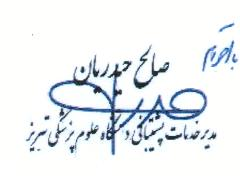 با احترام
صالح حیدریان
مدیر خدمات پشتیبانی دانشگاه علوم پزشکی تبریز